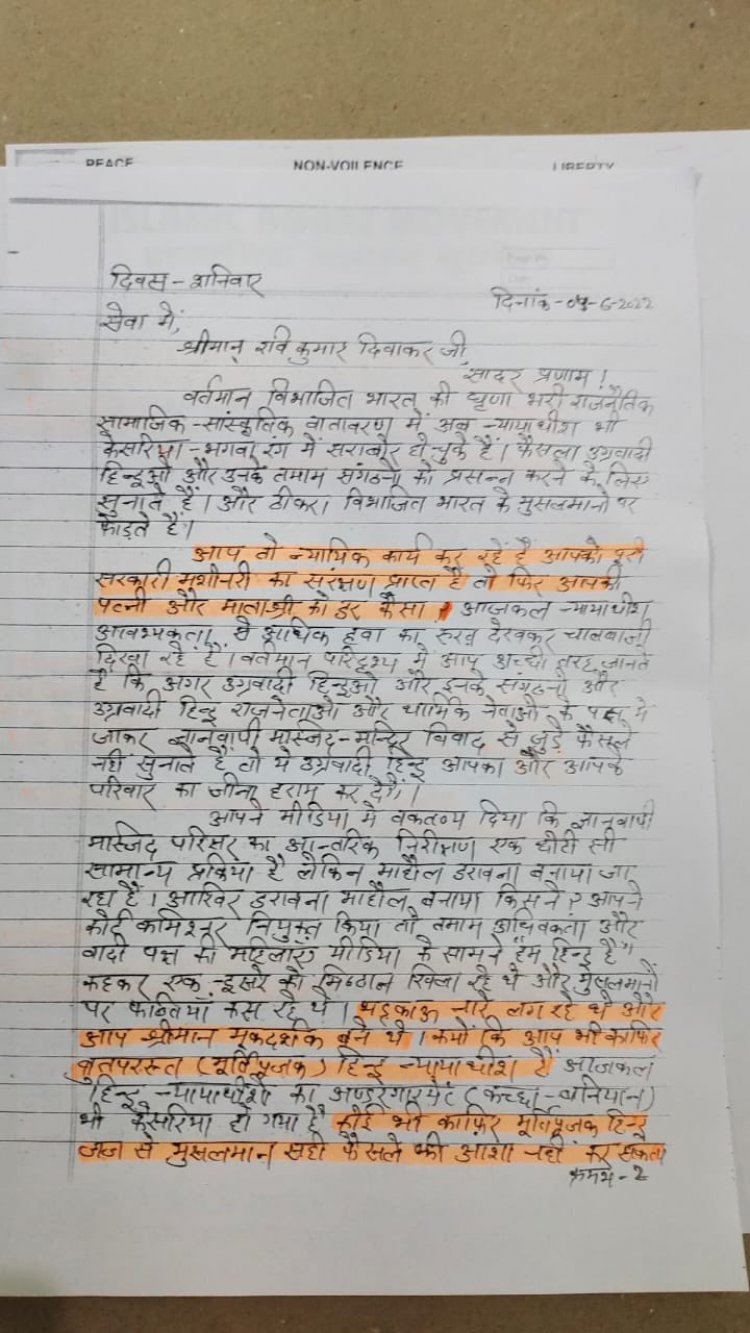 PEACE NON-VOILENCE LIBERTY
दिवस - शनिवार
दिनांक - 04-6-2022
सेवा में,
श्रीमान् रवि कुमार दिवाकर जी,
सादर प्रणाम!
वर्तमान विभाजित भारत की घृणा भरी राजनैतिक
सामाजिक-सांस्कृतिक वातावरण में अब न्यायाधीश भी
केसरिया-भगवा रंग में सराबोर हो चुके हैं। फैसला उग्रवादी
हिन्दुओं और उनके तमाम संगठनों को प्रसन्न करने के लिए
सुनाते हैं। और ठीकरा विभाजित भारत के मुसलमानो पर
फोड़ते हैं।
आप तो न्यायिक कार्य कर रहे हैं आपको पूरी
सरकारी मशीनरी का संरक्षण प्राप्त है तो फिर आपकी
पत्नी और माताश्री को डर कैसा। आजकल न्यायाधीश
आवश्यकता से अधिक हवा का रुख देखकर चालबाजी
दिखा रहे हैं। वर्तमान परिदृश्य में आप अच्छी तरह जानते
हैं कि अगर उग्रवादी हिन्दुओं और इनके संगठनों और
उग्रवादी हिन्दू राजनेताओं और धार्मिक नेताओं के पक्ष में
जाकर ज्ञानवापी मस्जिद-मन्दिर विवाद से जुड़े फैसले
नहीं सुनाते हैं तो ये उग्रवादी हिन्दू आपका और आपके
परिवार का जीना हराम कर देगें।
आपने मीडिया में वक्तव्य दिया कि ज्ञानवापी
मस्जिद परिसर का आन्तरिक निरीक्षण एक छोटी सी
सामान्य प्रक्रिया है लेकिन माहौल डरावना बनाया जा
रहा है। आखिर डरावना माहौल बनाया किसने? आपने
कोई कमिश्नर नियुक्त किया तो तमाम अधिवक्ता और
वादी पक्ष की महिलाएं मीडिया के सामने "हम हिन्दू हैं"
कहकर एक-दूसरे को मिष्ठान खिला रहे थे और मुसलमानों
पर फब्तियाँ कस रहे थे। भड़काऊ नारे लग रहे थे और
आप श्रीमान मूकदर्शक बने थे। क्यों कि आप भी काफिर
बुतपरस्त (मूर्तिपूजक) हिन्दू न्यायाधीश हैं आजकल
हिन्दू न्यायाधीशों का अण्डरगारमेंट (कच्छा-बनियान)
भी केसरिया हो गया है कोई भी काफिर मूर्तिपूजक हिन्दू
जज से मुसलमान सही फैसले की आशा नहीं कर सकता
क्रमशः-2